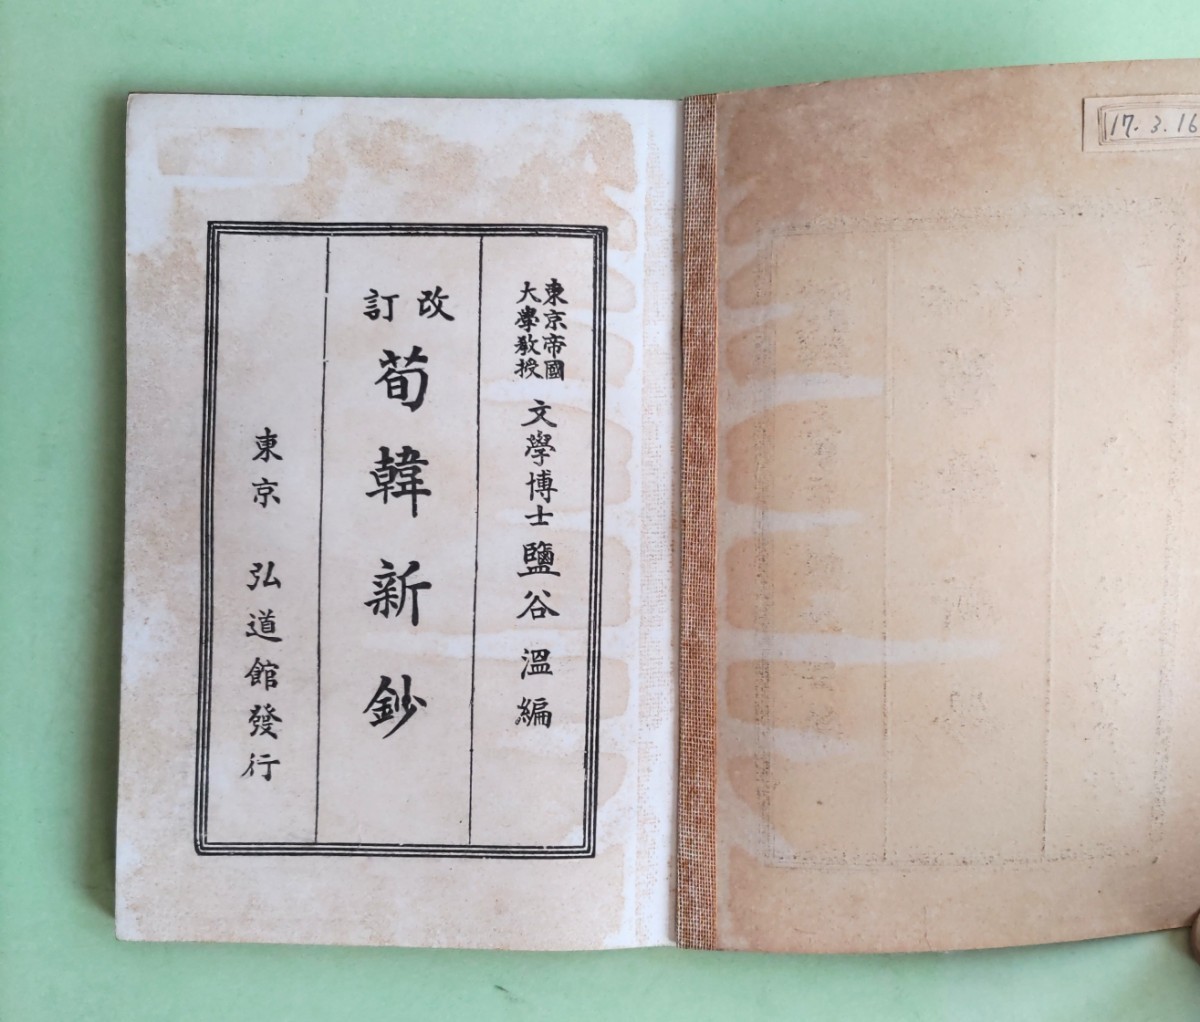 17.3.16
東京帝國
大學教授
文學博士 鹽谷 溫 編
改訂
荀韓新鈔
東京 弘道館發行